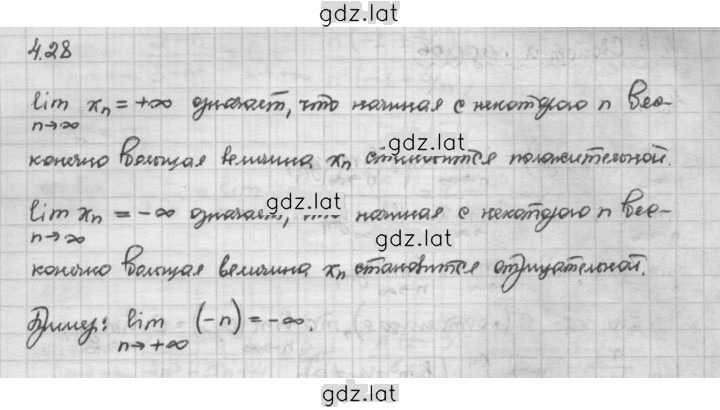 gdz.lat
4.28
lim xₙ = +∞ означает, что начиная с некоторого n бес-
n→∞
gdz.lat
конечно большая величина xₙ становится положительной.
gdz.lat
lim xₙ = -∞ означает, что начиная с некоторого n бес-
n→∞
gdz.lat
конечно большая величина xₙ становится отрицательной.
Пример: lim (-n) = -∞.
n→+∞
gdz.lat